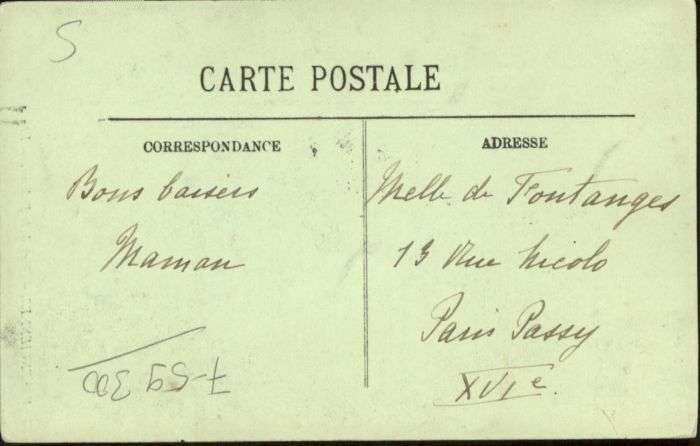 S
CARTE POSTALE
CORRESPONDANCE
Bons baisers
Maman
ADRESSE
Melle de Fontanges
13 Rue Nicolo
Paris Passy
XVIe